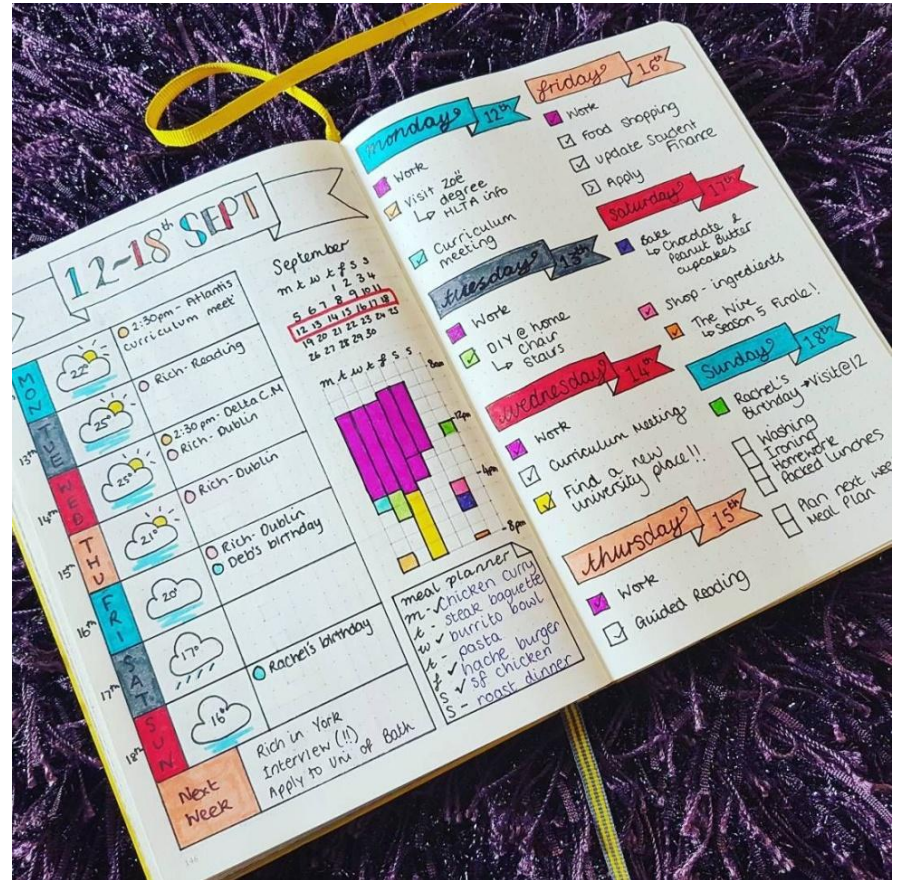 12-18th SEPT
MON
22°
2:30pm - Atlantis
curriculum meet
13th
TUE
25°
Rich - Reading
14th
WED
25°
2:30pm - Delta C.M
Rich - Dublin
15th
THU
21°
Rich - Dublin
16th
FRI
20°
Rich - Dublin
Deb's birthday
17th
SAT
17°
18th
SUN
16°
Rachel's birthday
Next
Week
Rich in York
Interview (!!)
Apply to Uni of Bath
September
m t w t f s s
1 2 3 4
5 6 7 8 9 10 11
12 13 14 15 16 17 18
19 20 21 22 23 24 25
26 27 28 29 30
m t w t f s s
8am
12pm
4pm
8pm
meal planner
m - chicken curry
t - steak baguette
w burrito bowl
t - pasta
f hache burger
s sf chicken
s - roast dinner
monday 12th
Work
Visit Zoë
degree
HLTA info
Curriculum
meeting
tuesday 13th
Work
DIY @ home
Chair
Stairs
wednesday 14th
Work
Curriculum Meeting
Find a new
university place!!
thursday 15th
Work
Guided Reading
friday 16th
Work
Food Shopping
update Student
Finance
Apply
saturday 17th
Bake
Chocolate &
Peanut Butter
cupcakes
Shop - ingredients
The Wire
Season 5 Finale!.
Sunday 18th
Rachel's
Birthday → Visit@12
Washing
Ironing
Homework
Packed lunches
Plan next week
Meal Plan